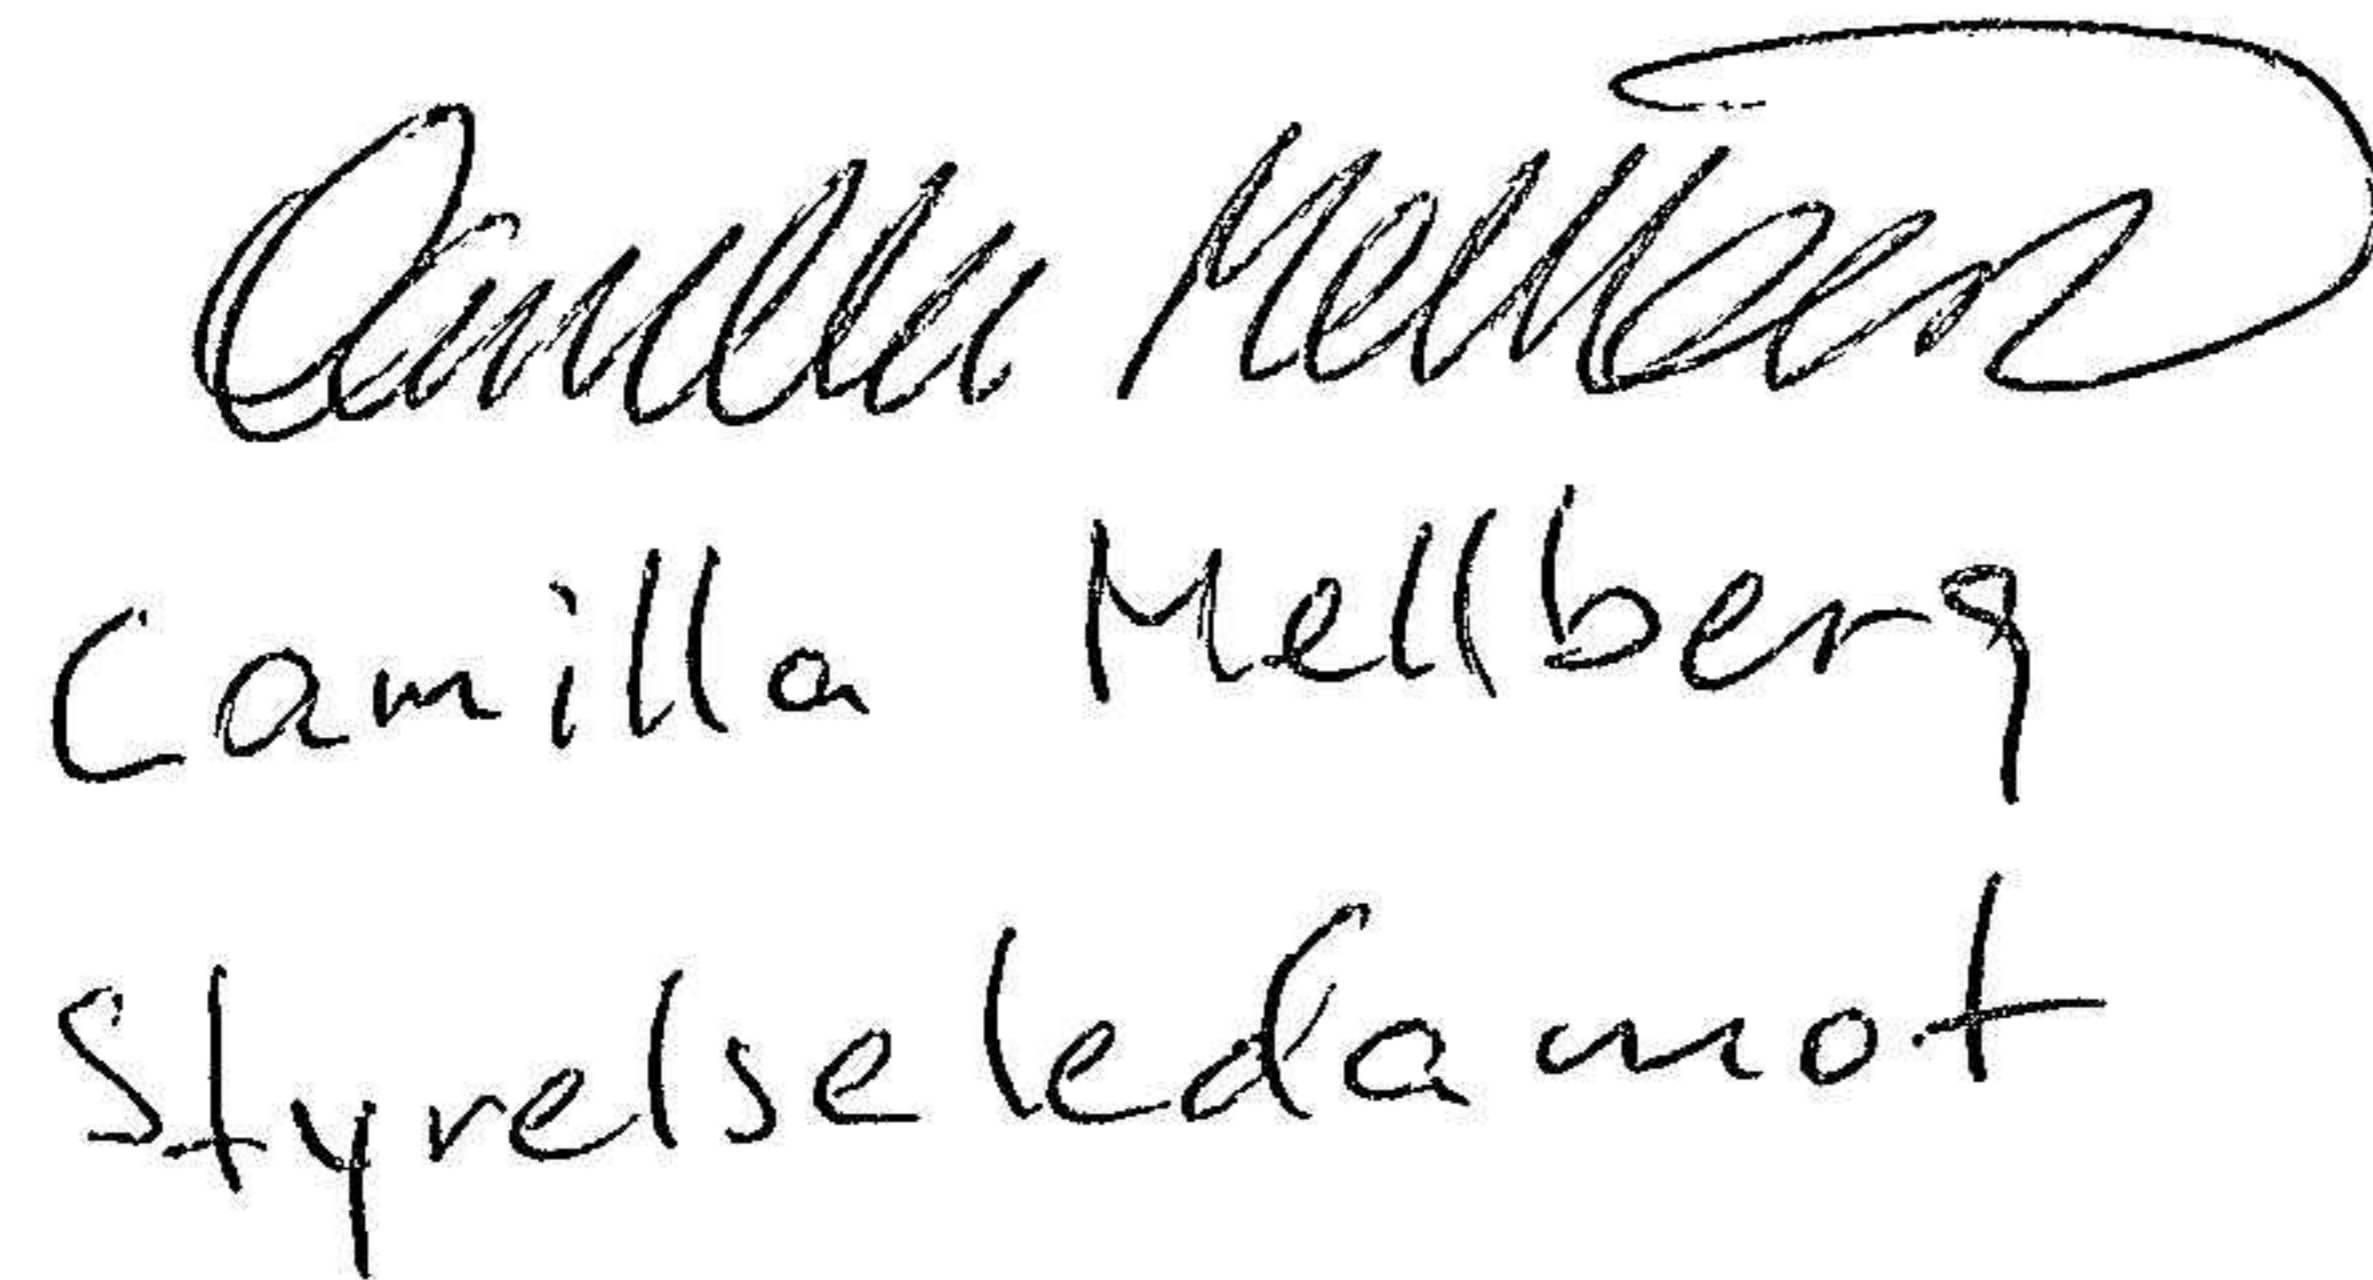 Camilla Mellberg
Camilla Mellberg
Styrelseledamot